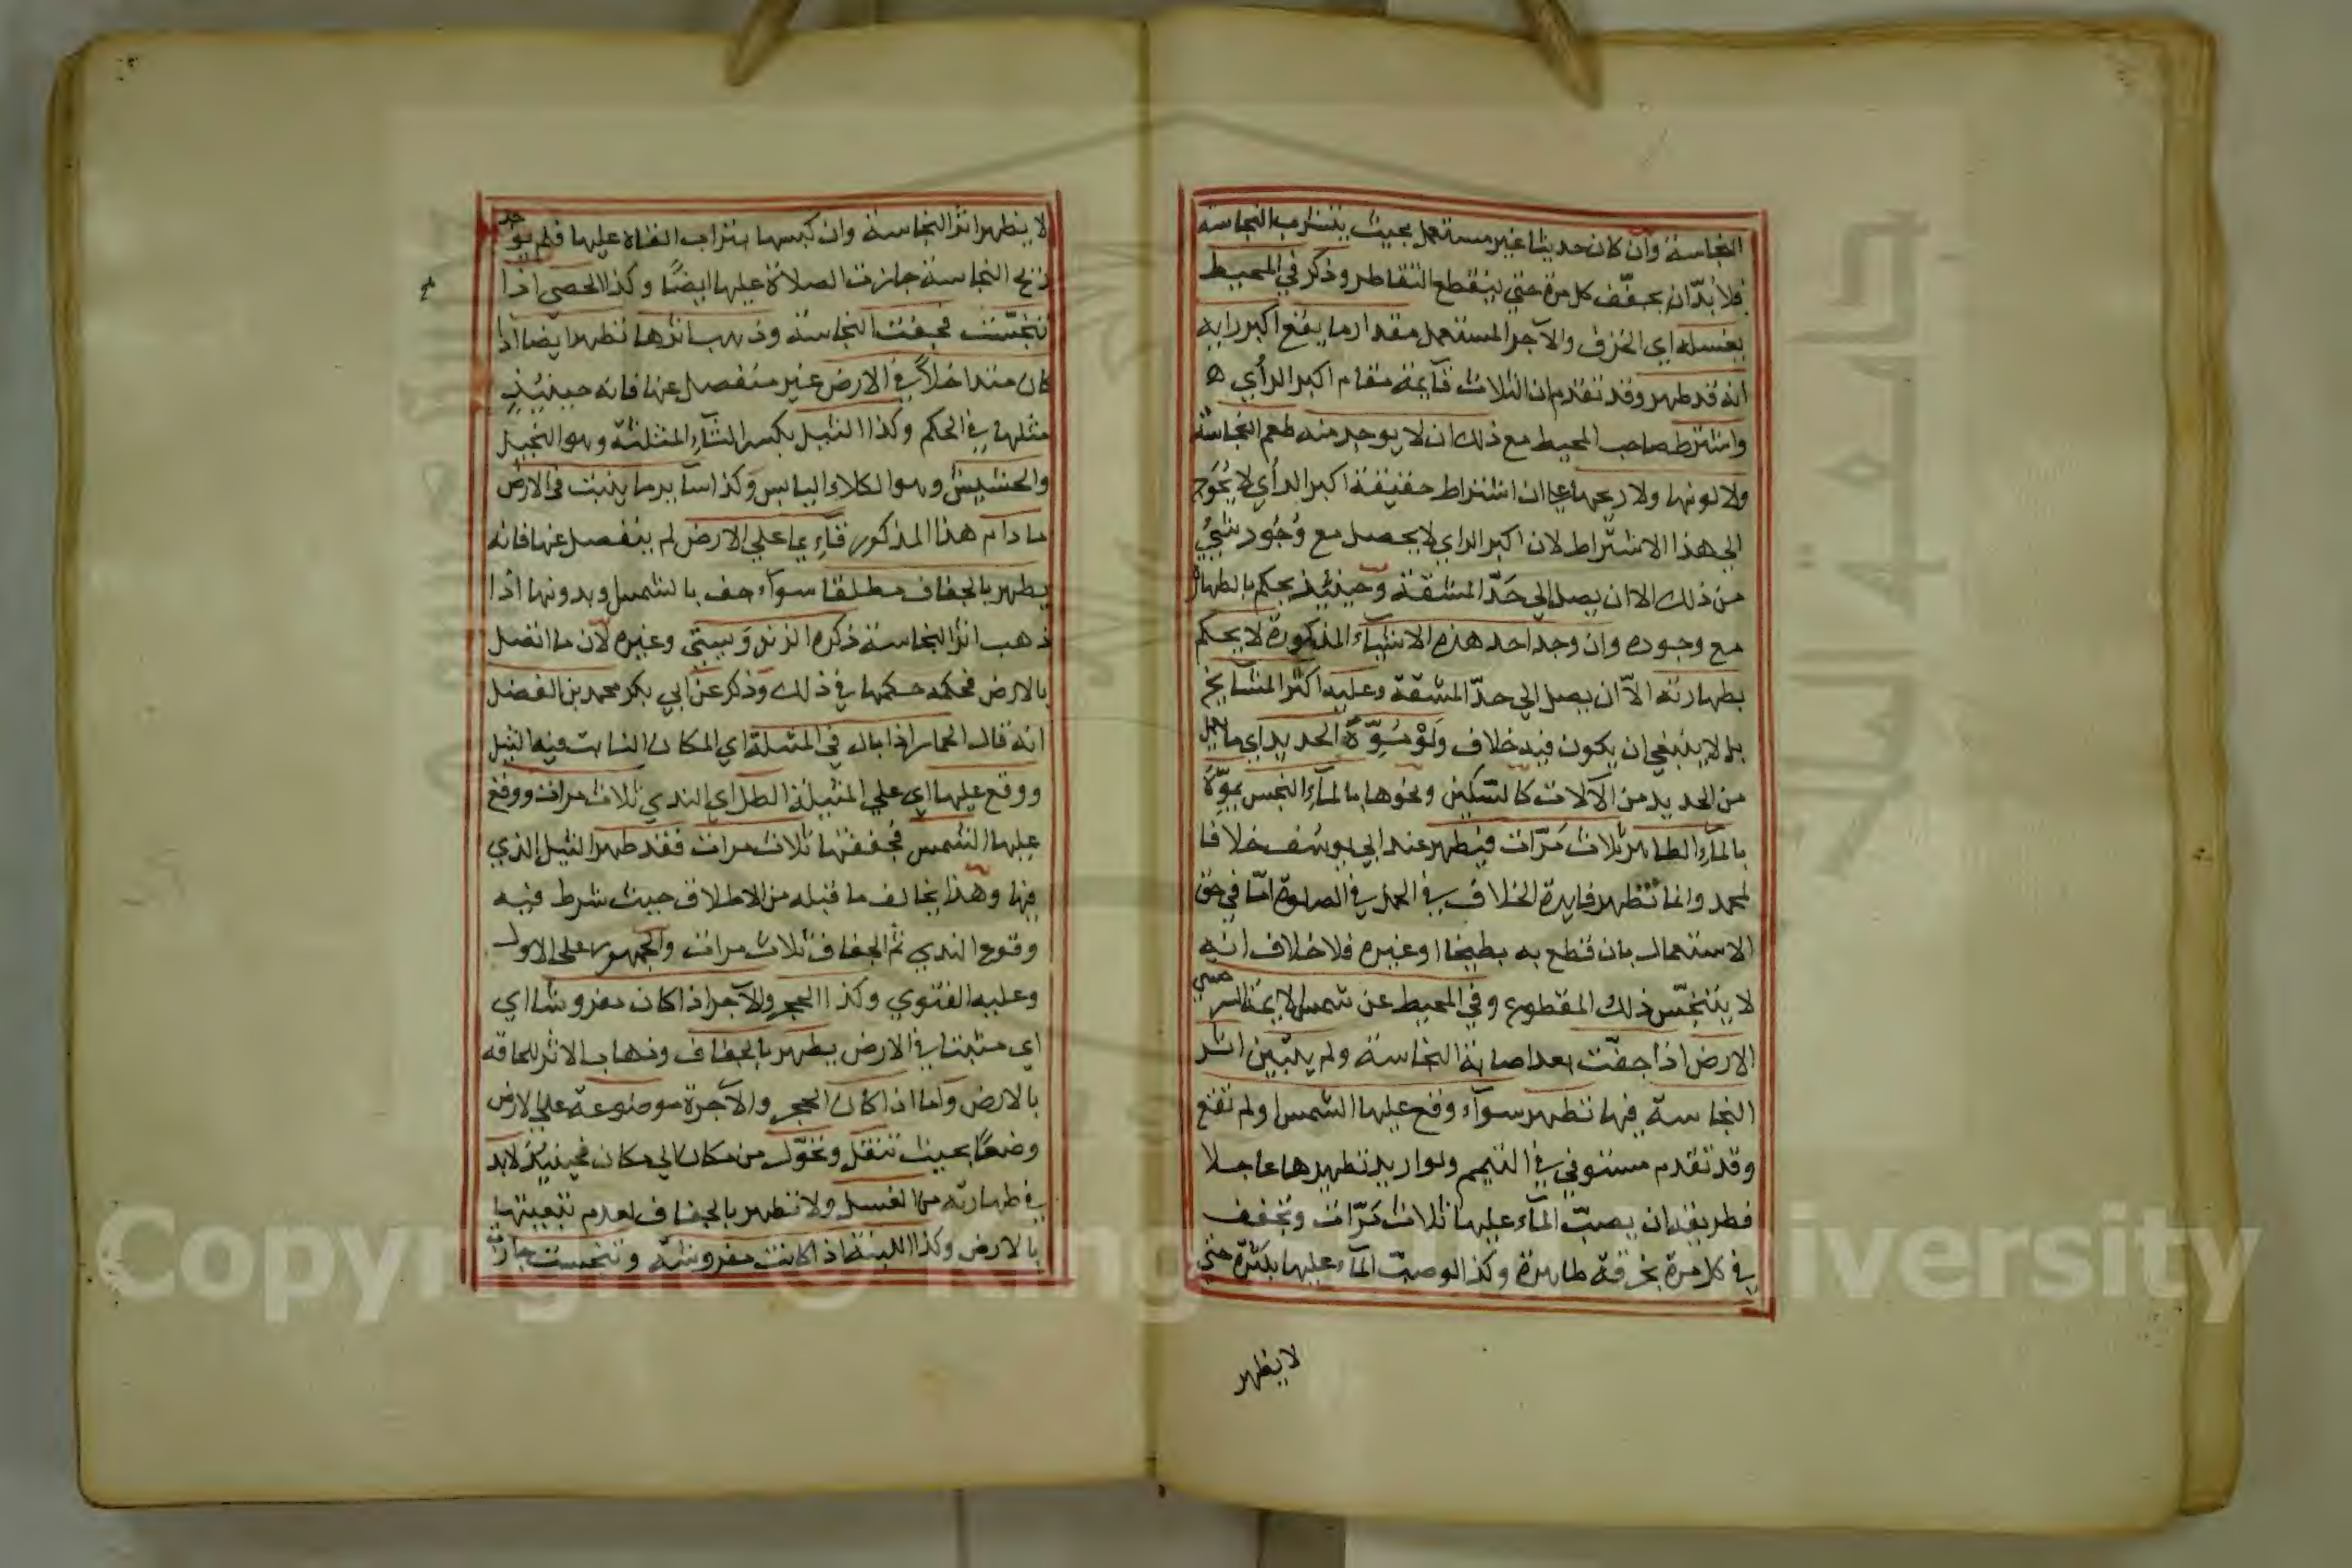 النجاسة وان كان حديثا غير مستعمل بحيث يتشرب النجاسة
فلا بدّ ان يجفّف كل مرة حتي ينقطع التقاطر وذكر في المحيط
يغسله اي الخزف والآجر المستعمل مقدار ما يقع اكبر رايه
انه قد طهر وقد تقدم ان الثلاث قآيمة مقام اكبر الرأي ه
واشترط صاحب المحيط مع ذلك ان لا يوجد منه طعم النجاسة
ولا لونها ولا ريحها علي ان اشتراط حقيقة اكبر الرأي لا يحوج
الي هذا الاشتراط لان اكبر الراي لا يحصل مع وُجُود شيئ
من ذلك الا ان يصل الي حَدّ المشقة وحينئذ يحكم بالطهارة
مع وجوده وان وجد احد هذه الاشيآء المذكورة لا يحكم
بطهارته الاّ ان يصل الي حدّ المشقة وعليه اكثر المشآيخ
بل لا ينبغي ان يكون فيه خلاف ولَوْ مُوِّهَ الحديد اي ما يعمل
من الحديد من الآلات كالسّكين ونحوها بالمآء النجس يموّه
بالمآء الطاهر ثلاث مَرّات فيطهر عند ابي يوسف خلافا
لمحمد وانما تظهر فايدة الخلاف في الحمل في الصلوة امّا في حق
الاستعمال بان قطع به بطيخا او غيره فلا خلاف انه
لا يتنجّس ذلك المقطوع وفي المحيط عن شمس الايمة السرخسي
الارض اذا جفّت بعد اصابة النجاسة ولم يتبين اثر
النجاسة فيها تطهر سوآء وقع عليها الشمس او لم تقع
وقد تقدم مستوفي في التيمم ولو اريد تطهيرها عاجلا
فطريقه ان يصبّ المآء عليها ثلاث مَرّات وتجفف
في كل مرة بخرقة طاهرة وكذا لو صبّ المآء عليها بكَثرة حتي
لا يظهر
لا يظهر اثر النجاسة وان كبسها بتراب القاه عليها فلم يوجد
ريح النجاسة جازت الصلاة عليها ايضًا وكذا الحصي اذا
تنجّست فجفت النجاسة وذهب اثرها تطهر ايضا اذا
كان متداخلاً في الارض غير منفصل عنها فانه حينيئذ
مثلها في الحكم وكذا الثيل بكسر الثآء المثلثة وهو النجيل
والحشيش وهو الكلاء اليابس وكذا سآير ما ينبت في الارض
ما دام هذا المذكور قآيما علي الارض لم ينفصل عنها فانه
يطهر بالجفاف مطلقا سوآء جف بالشمس او بدونها اذا
ذهب اثر النجاسة ذكره الزندوَيستي وغيره لان ما اتصل
بالارض فحكمه حكمها في ذلك وذكر عن ابي بكر محمد بن الفضل
انه قال الحمار اذا بال في المثيلة اي المكان النابت فيه الثيل
ووقع عليها اي علي المثيلة الطل اي الندي ثلاث مرات ووقع
عليها الشمس فجففتها ثلاث مرات فقد طهر الثيل الذي
فيها وهذا يخالف ما قبله من الاطلاق حيث شرط فيه
وقوع الندي ثم الجفاف ثلاث مرات والجمهور علي الاول
وعليه الفتوي وكذا الحجر والآجر اذا كان مفروشا اي
اي مثبتا في الارض يطهر بالجفاف وذهاب الاثر للحاقه
بالارض وامّا اذا كان الحجر والآجرة موضوعة علي الارض
وضعًا بحيث تنقل وتحوّل من مكان الي مكان فحينيئذ لا بد
في طهارته من الغسل ولا تطهر بالجفاف لعدم تبعيتها
بالارض وكذا اللبنة اذا كانت مفروشة وتنجست جازت
Copyright © King Saud University
جامعة الملك سعود